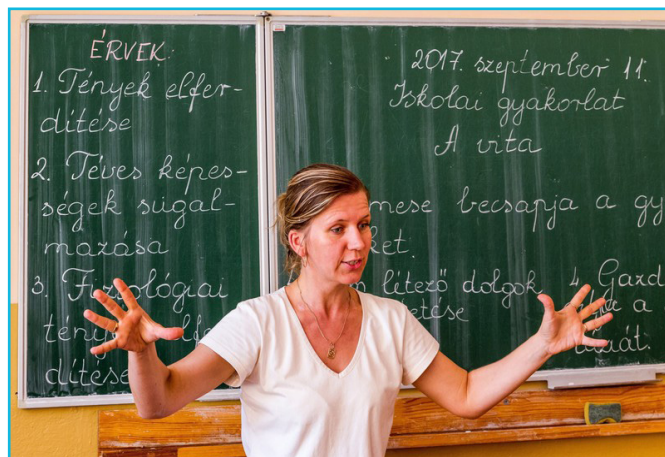 ÉRVEK:
1. Tények elfer-
dítése
2. Téves képes-
ségek sugal-
mazása
3. Fiziológiai
dítése
2017. szeptember 11.
Iskolai gyakorlat
A vita
mese becsapja a gy
ket.
létező dolgok
4. Gazd
a